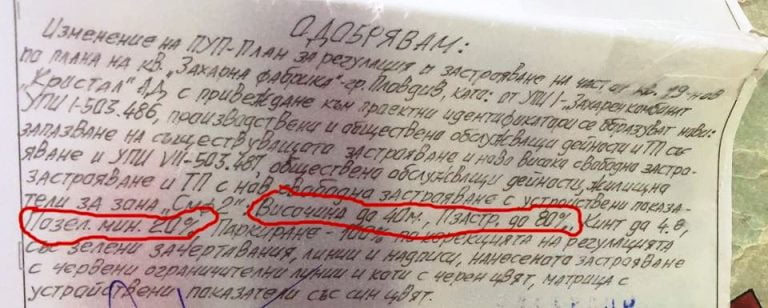 ОДОБРЯВАМ:
Изменение на ПУП-План за регулация и застрояване на част от кв. 19-нов
по плана на кв. „Захарна фабрика"-гр. Пловдив, като: от УПИ I-„Захарен комбинат
"Кристал" АД, с привеждане към проектни идентификатори се образуват нови:
УПИ I-503.486, производствени и обществено обслужващи дейности и ТП със
запазване на съществуващата застрояване и ново високо свободно застро-
яване и УПИ VII-503.487, обществено обслужващи дейности, жилищна
застрояване и ТП с нов свободно застрояване с устройствени показа-
тели за зона „Сма2": Височина до 40м., Пзастр. до 80%, Кинт до 4.0,
Позел. мин. 20%, Паркиране - 100% по корекцията на регулацията
със зелени зачертавания, линии и надписи, нанесената застрояване
с червени ограничителни линии и коти с черен цвят, матрица с
устройствени показатели със син цвят.